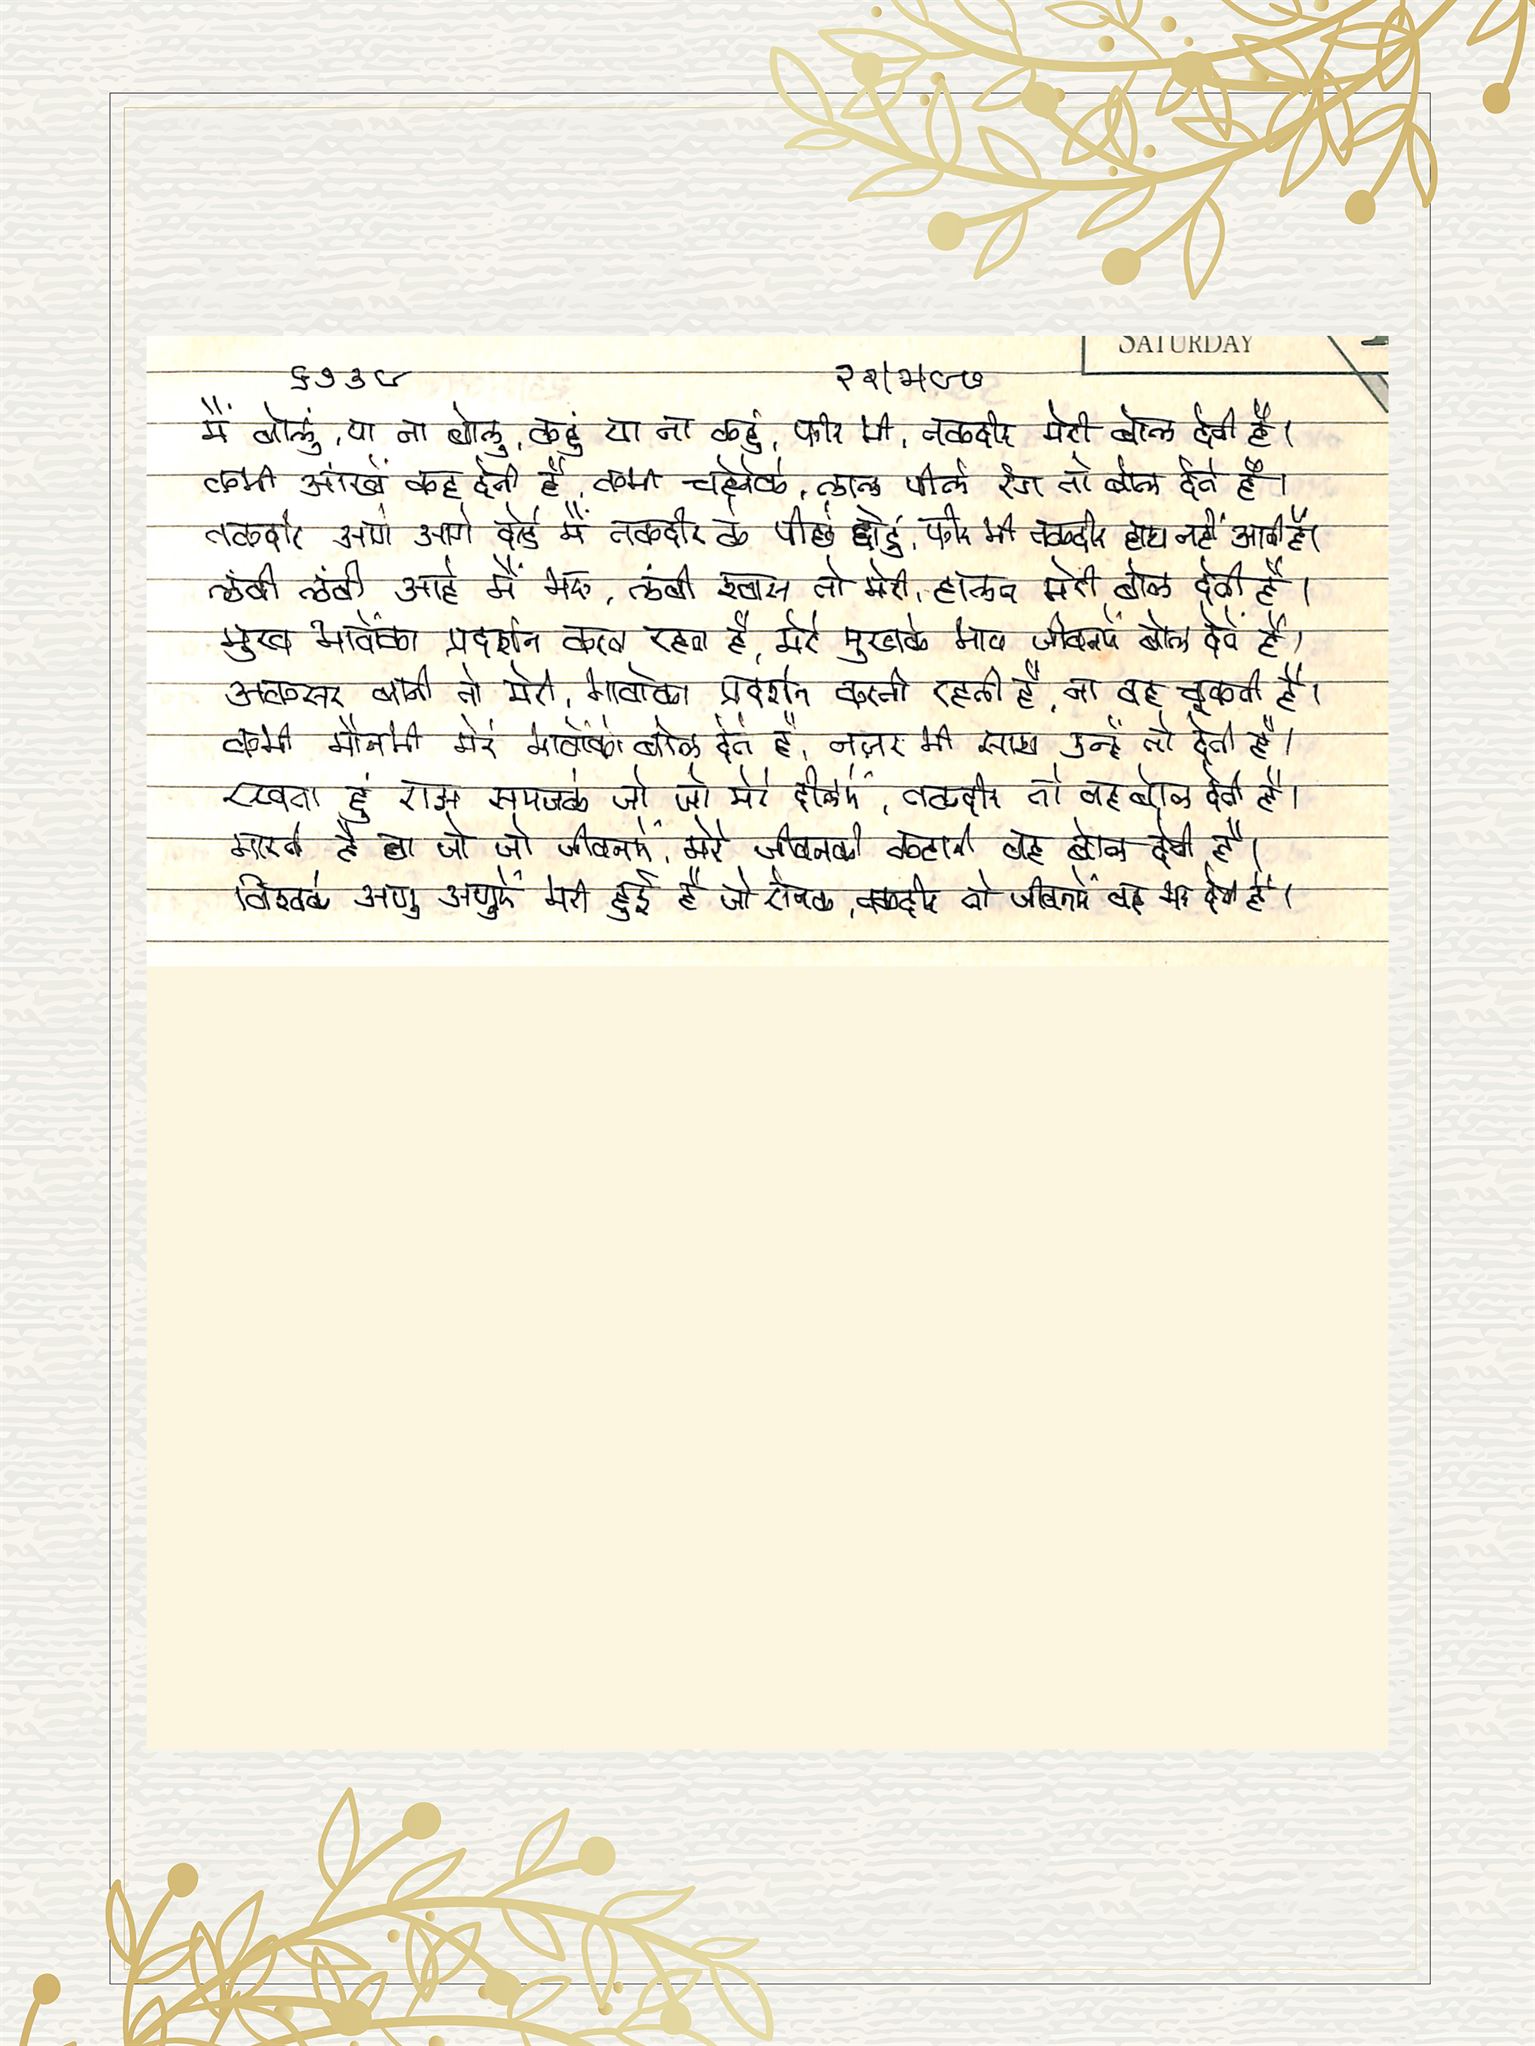 SATURDAY
६७३८
मैं बोलुं, या ना बोलु, कहुं या ना कहुं, फीर भी, तकदीर मेरी बोल देती है।
कभी आंखें कह देती है, कभी चहेरेके, लाल पीले रंग तो बोल देते है।
तकदीर आगे आगे दोडे मैं तकदीर के पीछे दोडुं, फीर भी तकदीर हाथ नहीं आती है।
लंबी लंबी आहे मैं भरु, लंबी श्वास तो मेरी, हालत मेरी बोल देती है।
मुख भावोंका प्रदर्शन करता रहता है, मेरे मुखके भाव जीवनमें बोल देते है।
अकसर बानी तो मेरी, भावोका प्रदर्शन करती रहती है, ना वह चूकती है।
कभी मौनभी मेरे भावोंको बोल देते है, नज़र भी साथ उन्हें तो देती है।
रखता हुं राझ समजके जो जो मेरे दीलमें, तकदीर तो वह बोल देती है।
मारते है जो जो जीवनमें, मेरे जीवनकी कहानी वह बोल देती है।
विश्वके अणु अणुमें भरी हुई है जो रोनक, तकदीर तो जीवनमें वह भर देती है।